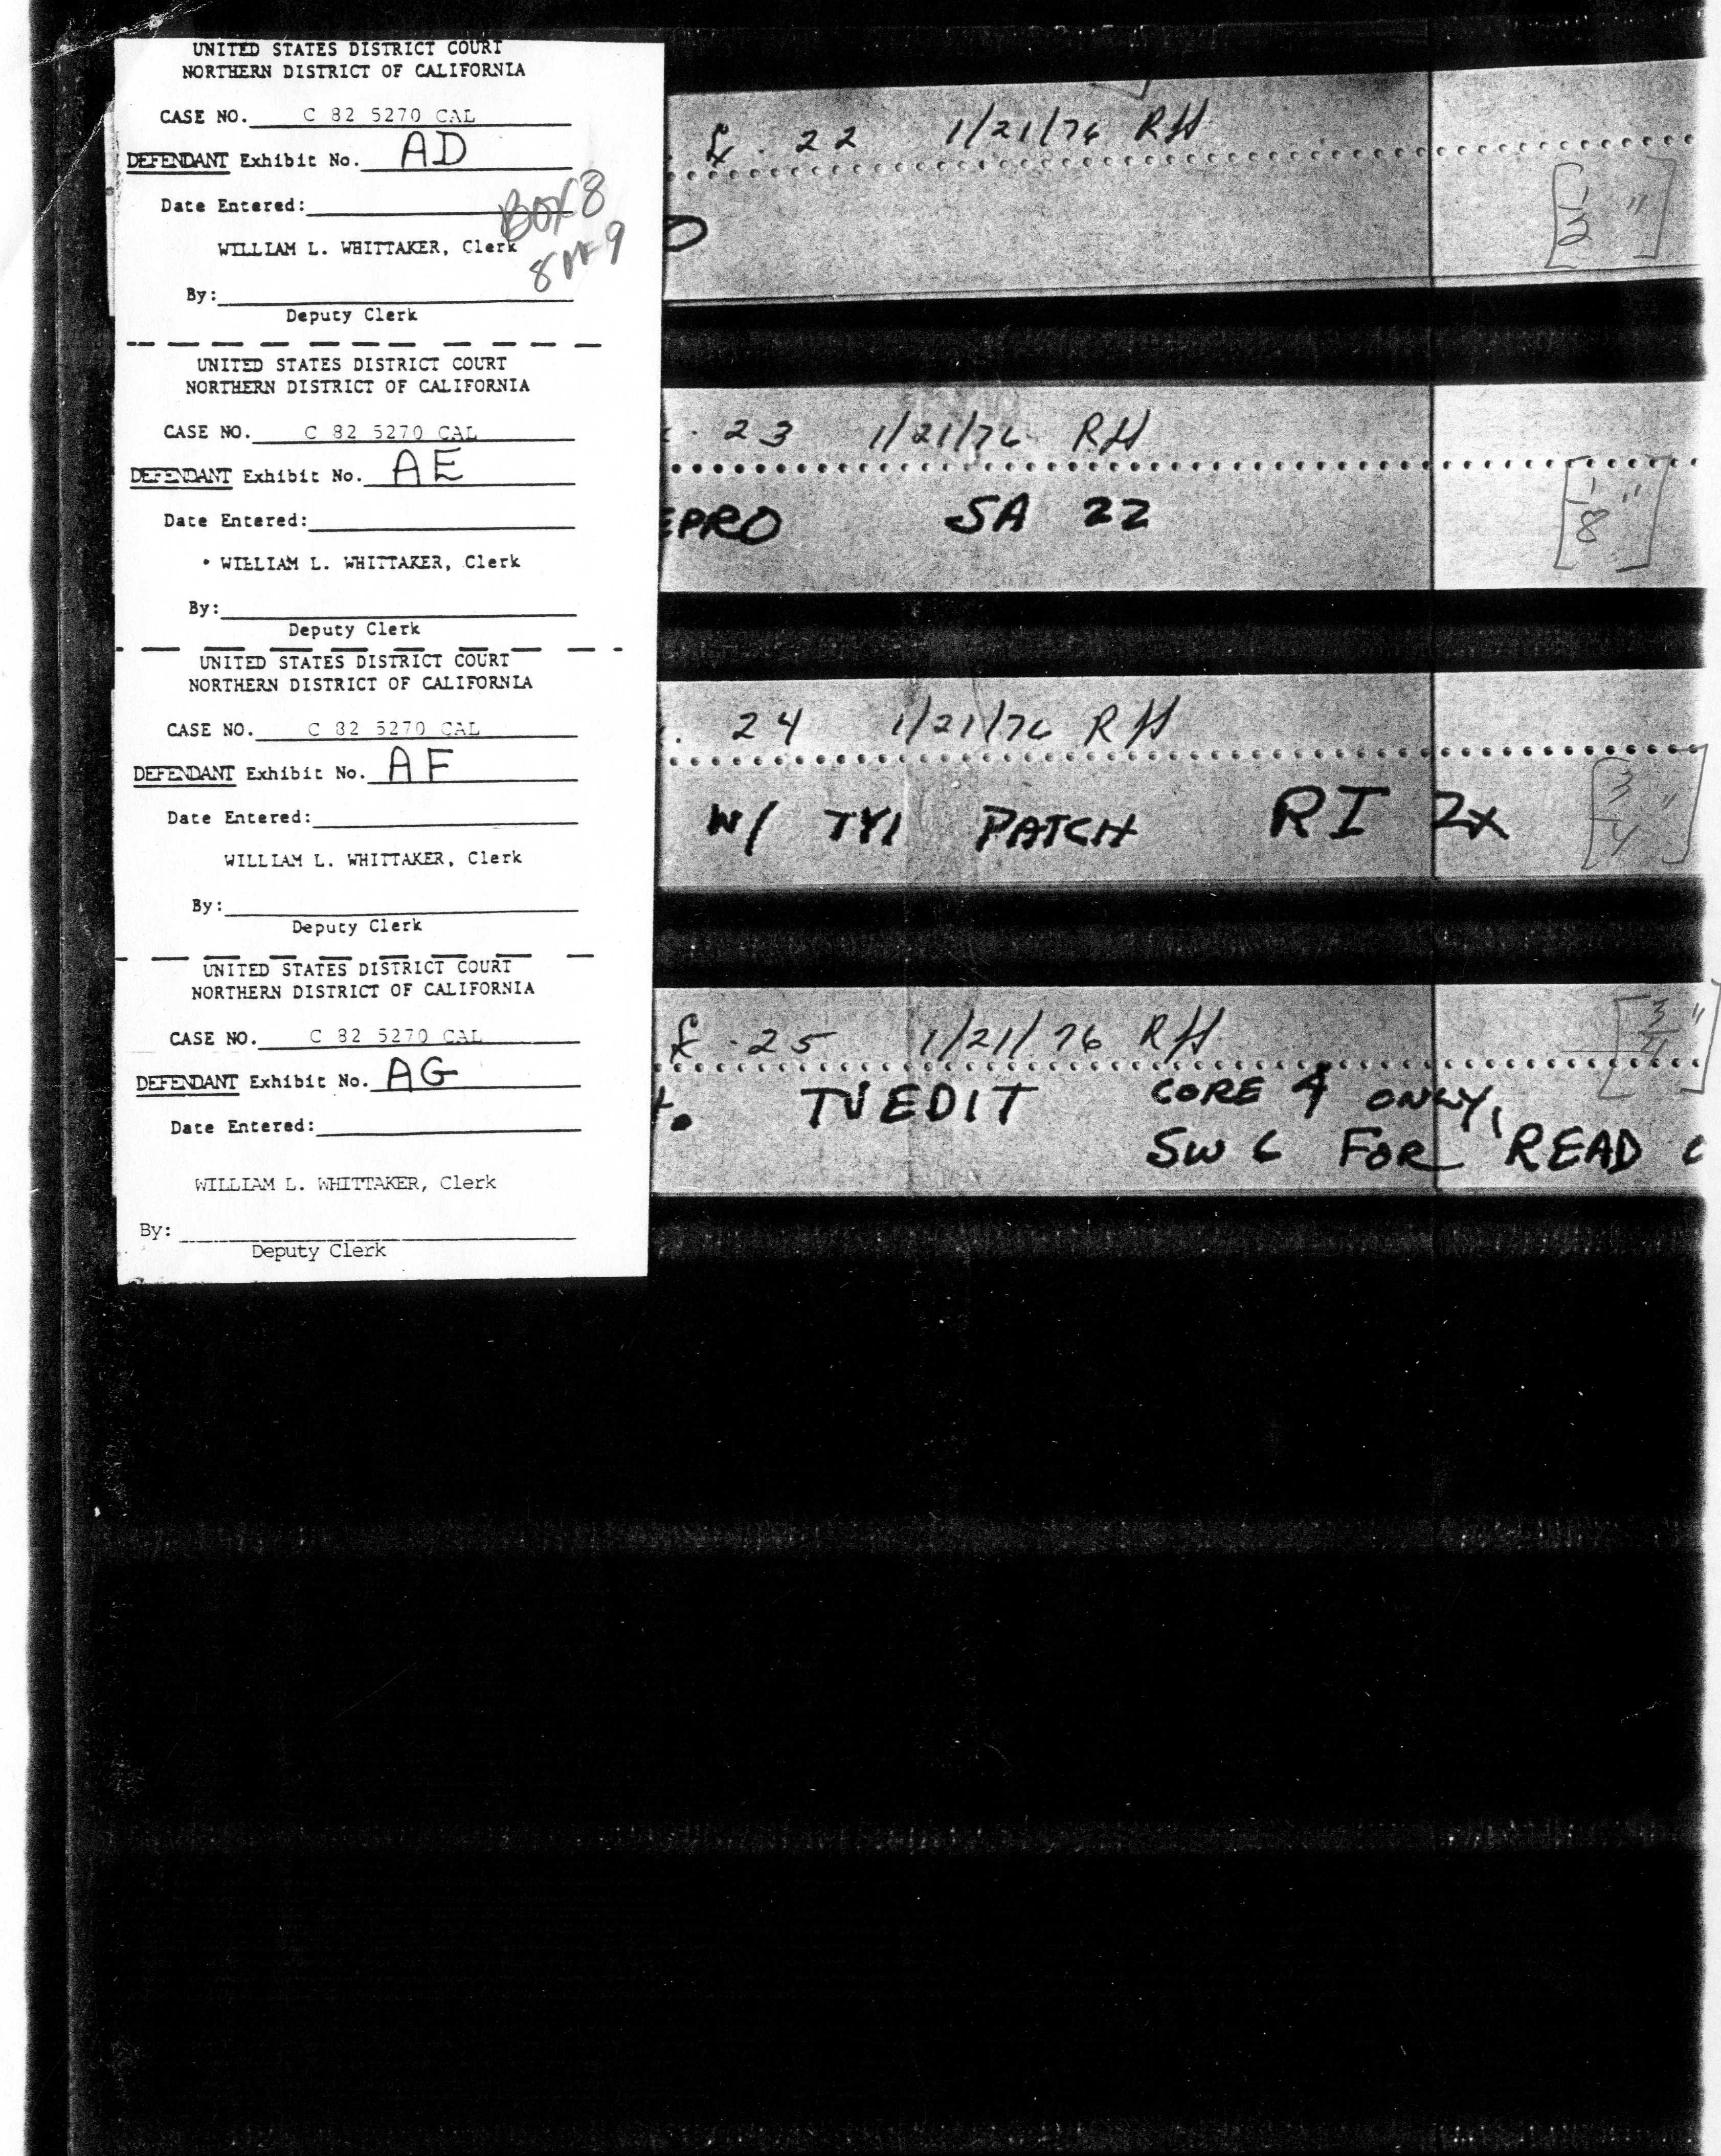 UNITED STATES DISTRICT COURT
NORTHERN DISTRICT OF CALIFORNIA
CASE NO. C 82 5270 CAL
DEFENDANT Exhibit No. AD
Date Entered:
BOX 8
WILLIAM L. WHITTAKER, Clerk
By:
Deputy Clerk
UNITED STATES DISTRICT COURT
NORTHERN DISTRICT OF CALIFORNIA
CASE NO. C 82 5270 CAL
DEFENDANT Exhibit No. AE
Date Entered:
WILLIAM L. WHITTAKER, Clerk
By:
Deputy Clerk
UNITED STATES DISTRICT COURT
NORTHERN DISTRICT OF CALIFORNIA
CASE NO. C 82 5270 CAL
DEFENDANT Exhibit No. AF
Date Entered:
WILLIAM L. WHITTAKER, Clerk
By:
Deputy Clerk
UNITED STATES DISTRICT COURT
NORTHERN DISTRICT OF CALIFORNIA
CASE NO. C 82 5270 CAL
DEFENDANT Exhibit No. AG
Date Entered:
WILLIAM L. WHITTAKER, Clerk
By:
Deputy Clerk
22 1/21/76 RH
[1/2"]
23 1/21/76 RH
EPRO SA 22
[1/8"]
24 1/21/76 RH
W/ TYI PATCH RI 2x
[3/4"]
25 1/21/76 RH
TVEDIT CORE 4 ONLY,
SW 6 FOR READ